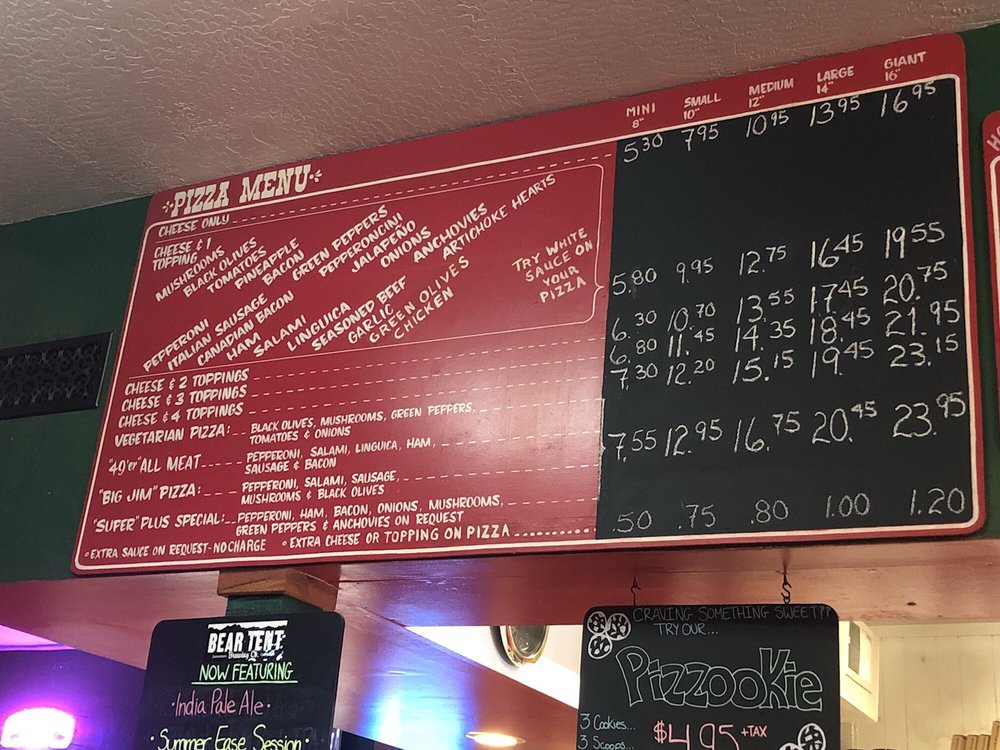 PIZZA MENU
MINI 8" SMALL 10" MEDIUM 12" LARGE 14" GIANT 16"
CHEESE ONLY 5.30 7.95 10.95 13.95 16.95
CHEESE & 1
TOPPING
MUSHROOMS
BLACK OLIVES
TOMATOES
PINEAPPLE
BACON
GREEN PEPPERS
PEPPERONCINI
JALAPEÑO
ONIONS
ANCHOVIES
ARTICHOKE HEARTS
PEPPERONI
ITALIAN SAUSAGE
CANADIAN BACON
HAM
SALAMI
LINGUICA
SEASONED BEEF
GARLIC
GREEN OLIVES
CHICKEN
TRY WHITE
SAUCE ON
YOUR
PIZZA
5.80 9.95 12.75 16.45 19.55
CHEESE & 2 TOPPINGS 6.30 10.70 13.55 17.45 20.75
CHEESE & 3 TOPPINGS 6.80 11.45 14.35 18.45 21.95
CHEESE & 4 TOPPINGS 7.30 12.20 15.15 19.45 23.15
VEGETARIAN PIZZA: BLACK OLIVES, MUSHROOMS, GREEN PEPPERS,
TOMATOES & ONIONS
"49'er" ALL MEAT PEPPERONI, SALAMI, LINGUICA, HAM,
SAUSAGE & BACON
7.55 12.95 16.75 20.45 23.95
"BIG JIM" PIZZA: PEPPERONI, SALAMI, SAUSAGE,
MUSHROOMS & BLACK OLIVES
"SUPER" PLUS SPECIAL: PEPPERONI, HAM, BACON, ONIONS, MUSHROOMS,
GREEN PEPPERS & ANCHOVIES ON REQUEST
EXTRA SAUCE ON REQUEST-NO CHARGE EXTRA CHEESE OR TOPPING ON PIZZA .50 .75 .80 1.00 1.20
BEAR TENT
Brewing Co.
NOW FEATURING
India Pale Ale
Summer Ease Session
CRAVING SOMETHING SWEET??
TRY OUR...
Pizzookie
3 Cookies...
3 Scoops...
$4.95 +TAX